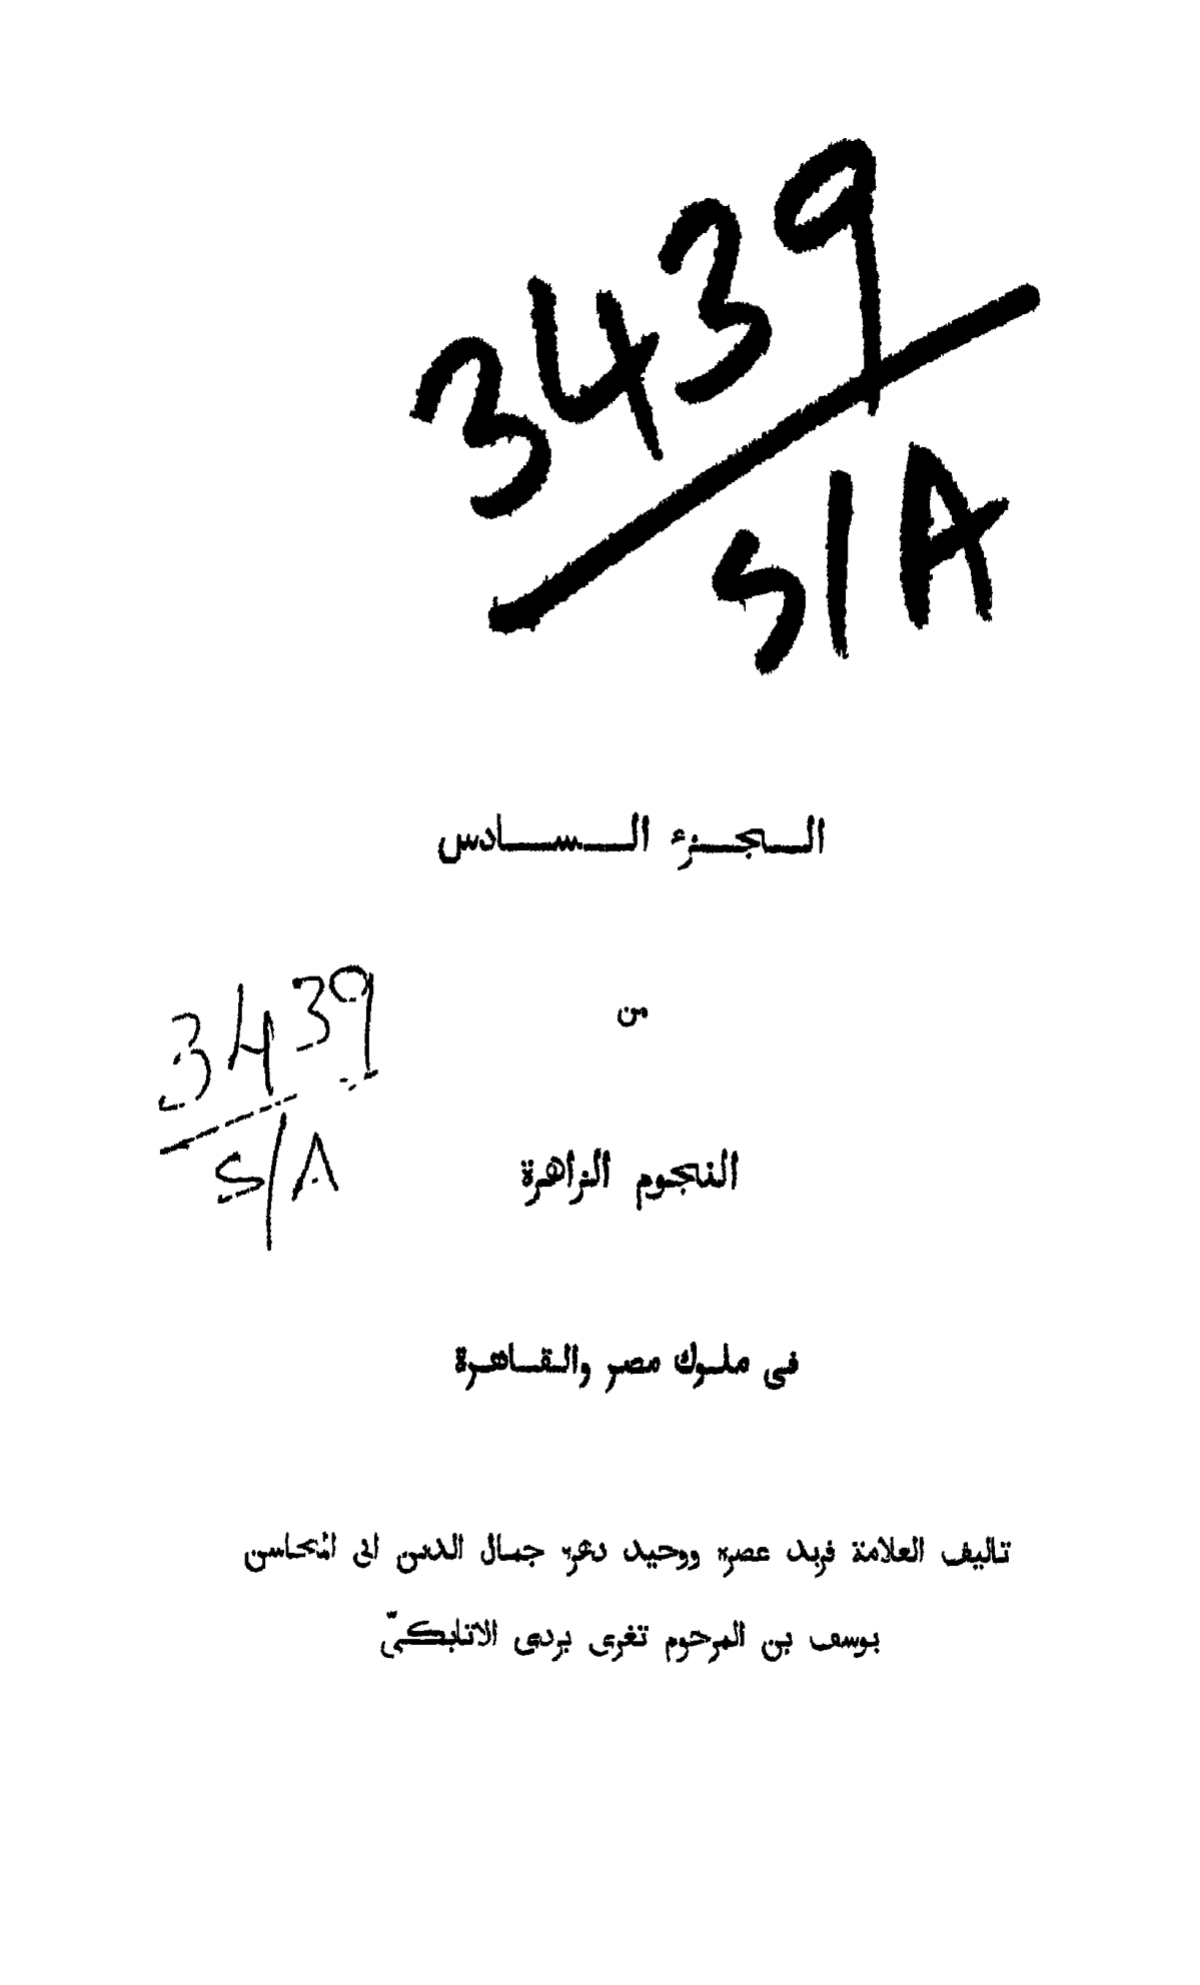 3439
S/A
الجزء السادس
3439
S/A
من
النجوم الزاهرة
فى ملوك مصر والقاهرة
تاليف العلامة فريد عصره ووحيد دهره جمال الدين ابى المحاسن
يوسف بن المرحوم تغرى بردى الاتابكىّ